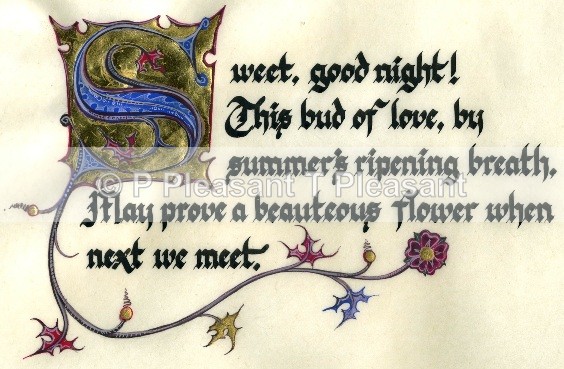 Sweet, good night!
This bud of love, by
summer's ripening breath,
© P Pleasant T Pleasant
May prove a beauteous flower when
next we meet.